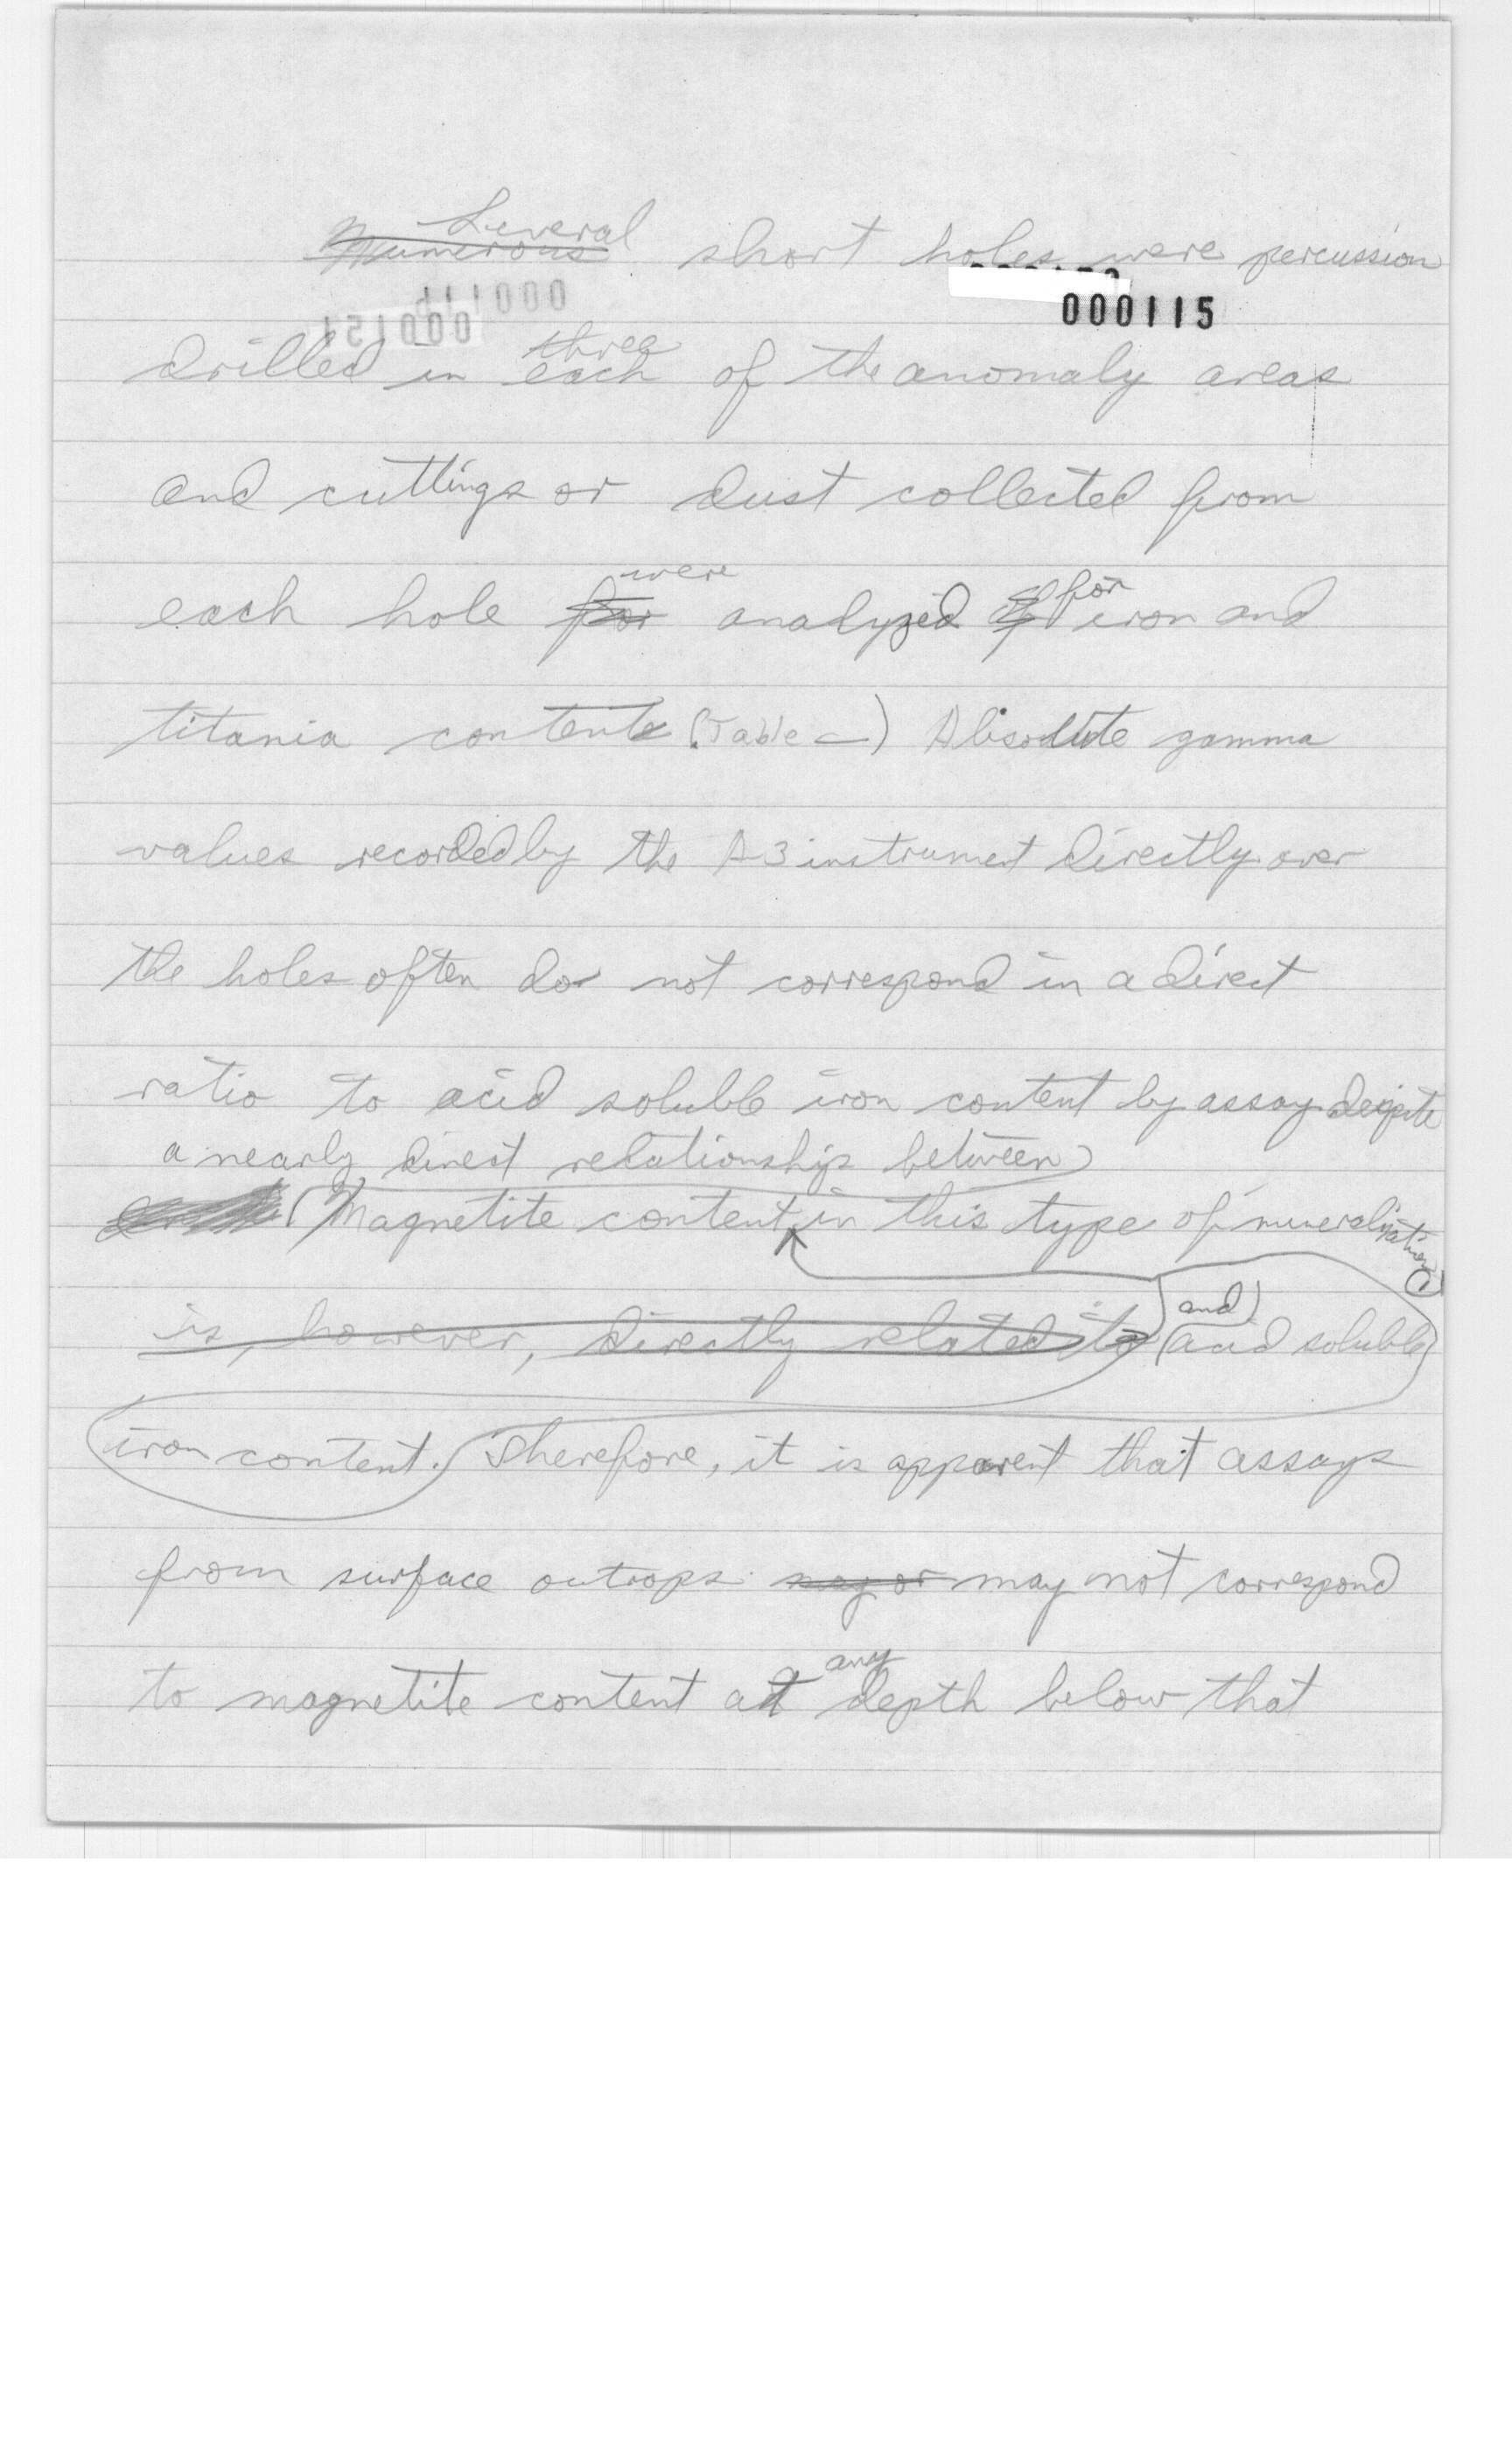 Several
Numerous short holes were percussion
000115
drilled in each of the anomaly areas
three
and cuttings or dust collected from
were
each hole for analyzed for iron and
titania contents (Table —) Absolute gamma
values recorded by the A-3 instrument directly over
the holes often do not correspond in a direct
ratio to acid soluble iron content by assay despite
a nearly direct relationship between
Magnetite content in this type of mineralization
is, however, directly related to and acid soluble
iron content. Therefore, it is apparent that assays
from surface outrops may or may not correspond
any
to magnetite content at depth below that